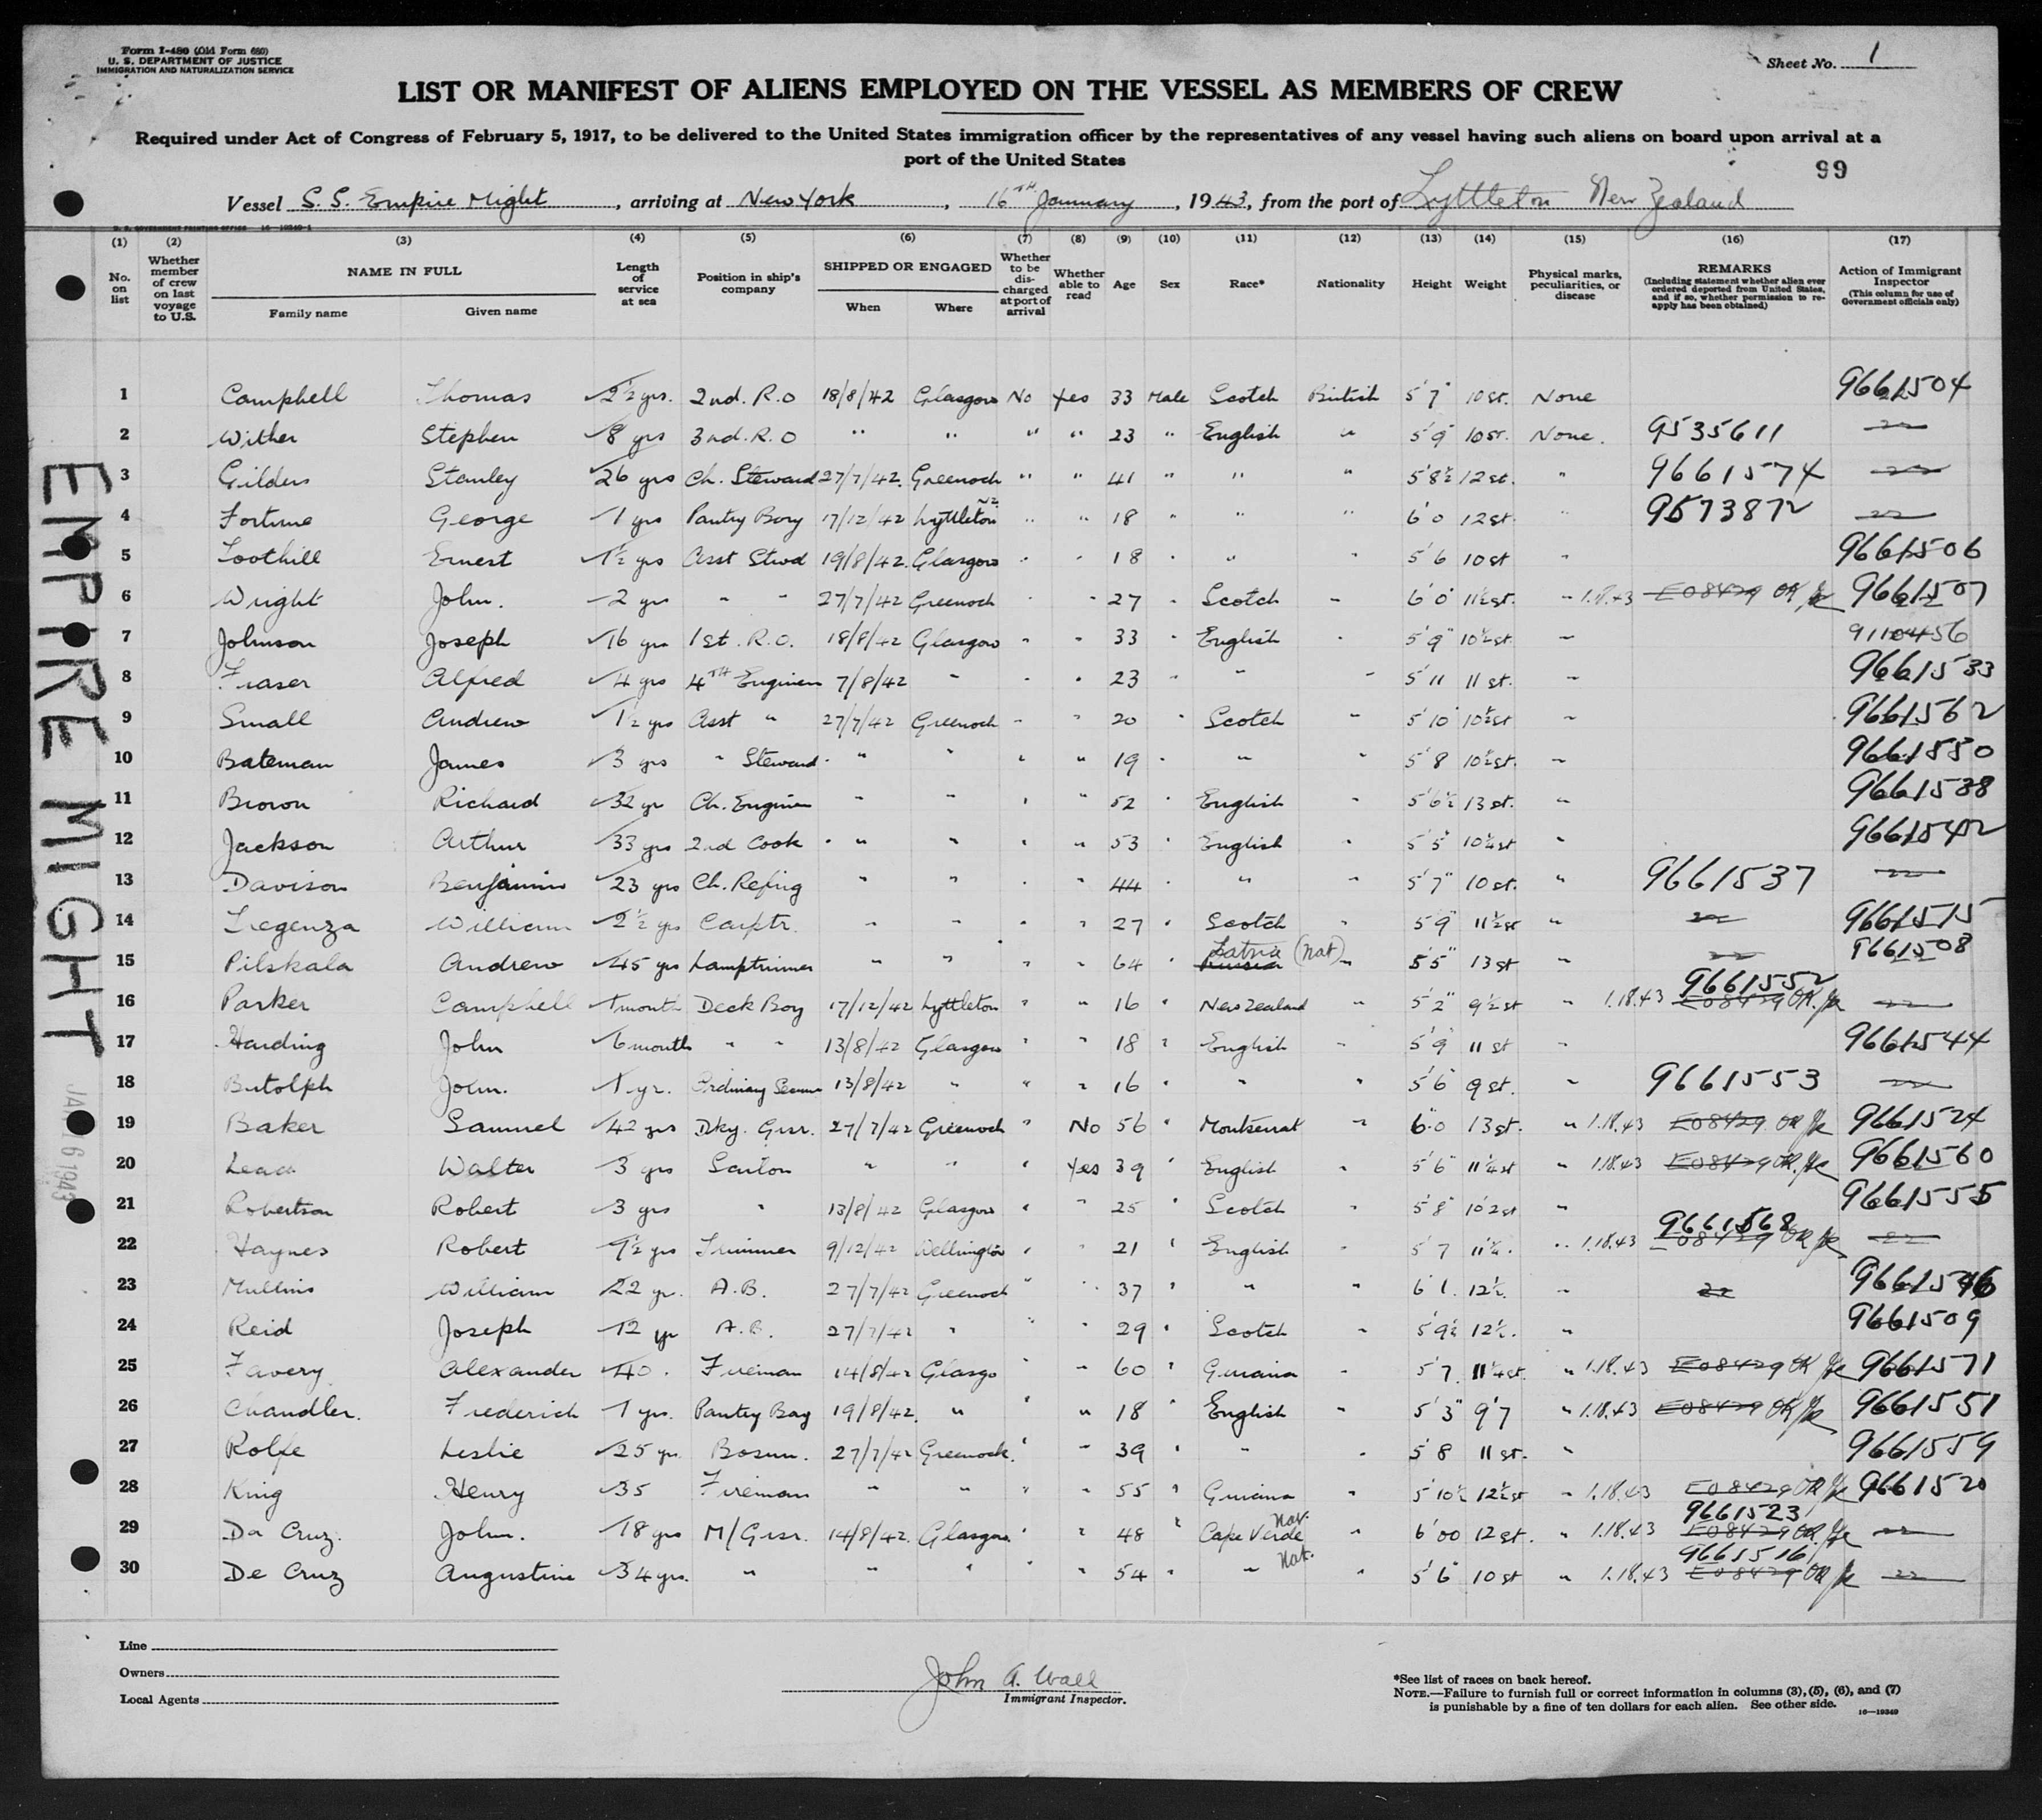 Form I-480 (Old Form 680)
U. S. DEPARTMENT OF JUSTICE
IMMIGRATION AND NATURALIZATION SERVICE
Sheet No. 1
LIST OR MANIFEST OF ALIENS EMPLOYED ON THE VESSEL AS MEMBERS OF CREW
Required under Act of Congress of February 5, 1917, to be delivered to the United States immigration officer by the representatives of any vessel having such aliens on board upon arrival at a
port of the United States
99
Vessel S.S. Empire Might, arriving at New York, 16TH January, 1943, from the port of Lyttleton New Zealand
(1) (2) (3) (4) (5) (6) (7) (8) (9) (10) (11) (12) (13) (14) (15) (16) (17)
No. on list
Whether member of crew on last voyage to U.S.
NAME IN FULL
Family name
Given name
Length of service at sea
Position in ship's company
SHIPPED OR ENGAGED
When
Where
Whether to be discharged at port of arrival
Whether able to read
Age
Sex
Race*
Nationality
Height
Weight
Physical marks, peculiarities, or disease
REMARKS
(Including statement whether alien ever ordered deported from United States, and if so, whether permission to re-apply has been obtained)
Action of Immigrant Inspector
(This column for use of Government officials only)
1 Campbell Thomas 2½ yrs. 2nd. R.O 18/8/42 Glasgow No Yes 33 Male Scotch British 5'7" 10 st. None 9661504
2 Wither Stephen 8 yrs 3rd. R.O " " " " 23 " English " 5'9" 10 st. None. 9535611
3 Gilders Stanley 26 yrs Ch. Steward 27/7/42 Greenock " " 41 " " " 5'8½ 12 st. " 9661574
4 Fortune George 1 yrs Pantry Boy 17/12/42 Lyttleton NZ " " 18 " " " 6'0 12 st. " 9573872
5 Toothill Ernest 1½ yrs Asst Stwd 19/8/42 Glasgow " " 18 " " " 5'6 10 st " 9661506
6 Wright John. 2 yrs " " 27/7/42 Greenock " " 27 " Scotch " 6'0" 11½ st. " 1.18.43 E08429 OK 9661507
7 Johnson Joseph 16 yrs 1st. R.O. 18/8/42 Glasgow " " 33 " English " 5'9" 10½ st. " 9110456
8 Fraser Alfred 4 yrs 4TH Engineer 7/8/42 " " " 23 " " " 5'11 11 st. " 9661533
9 Small Andrew 1½ yrs Asst " 27/7/42 Greenock " " 20 " Scotch " 5'10" 10½ st " 9661562
10 Bateman James 3 yrs " Steward " " " " 19 " " " 5'8 10½ st. " 9661550
11 Brown Richard 32 yr Ch. Engineer " " " " 52 " English " 5'6½ 13 st. " 9661538
12 Jackson Arthur 33 yrs 2nd Cook " " " " 53 " English " 5'5" 10½ st " 9661542
13 Davison Benjamin 23 yrs Ch. Refrig " " " " 44 " " " 5'7" 10 st. " 9661537
14 Tregenza William 2½ yrs Carptr. " " " " 27 " Scotch " 5'9" 11½ st " 9661515
15 Pilskala Andrew 45 yrs Lamptrimmer " " " " 64 " Russia Latvia (Nat) " 5'5" 13 st " 9661508
16 Parker Campbell 1 month Deck Boy 17/12/42 Lyttleton " " 16 " New Zealand " 5'2" 9½ st " 1.18.43 9661552 E08429 OK.
17 Harding John 6 months " " 13/8/42 Glasgow " " 18 " English " 5'9 11 st " 9661544
18 Butolph John. 1 yr. Ordinary Seaman 13/8/42 " " " 16 " " " 5'6" 9 st. " 9661553
19 Baker Samuel 42 yrs Dky. Grsr. 27/7/42 Greenock " No 56 " Montserrat " 6'0 13 st. " 1.18.43 E08429 OK 9661524
20 Walter 3 yrs Sailor " " " Yes 39 " English " 5'6" 11¼ st " 1.18.43 E08429 OK. 9661560
21 Robertson Robert 3 yrs " 13/8/42 Glasgow " " 25 " Scotch " 5'8" 10 2 st " 9661555
22 Haynes Robert 1½ yrs Trimmer 9/12/42 Wellington " " 21 " English " 5'7 11½. " 1.18.43 9661568 E08429 OK
23 Mullins William 22 yr. A.B. 27/7/42 Greenock " " 37 " " " 6'1. 12½. " 9661546
24 Reid Joseph 12 yr A.B. 27/7/42 " " " 29 " Scotch " 5'9½ 12½. " 9661509
25 Favery Alexander 40. Fireman 14/8/42 Glasgo " " 60 " Guiana " 5'7. 11¼ st. " 1.18.43 E08429 OK 9661571
26 Chandler. Frederick 1 yrs. Pantry Boy 19/8/42. " " " 18 " English " 5'3" 9'7 " 1.18.43 E08429 OK 9661551
27 Rolfe Leslie 25 yr. Bosun. 27/7/42 Greenock. " " 39 " " " 5'8 11 st. " 9661559
28 King Henry 35 Fireman " " " " 55 " Guiana " 5'10½ 12½ st " 1.18.43 E08429 OK 9661520
29 Da Cruz. John. 18 yrs M/Grsr. 14/8/42. Glasgow " " 48 " Cape Verde Nat. " 6'00 12 st. " 1.18.43 9661523 E08429 OK.
30 De Cruz Augustine 34 yrs. " " " " 54 " " Nat. " 5'6" 10 st " 1.18.43 9661516 E08429 OK
EMPIRE MIGHT
JAN 16 1943
Line
Owners
Local Agents
John A. Wall
Immigrant Inspector.
*See list of races on back hereof.
NOTE.—Failure to furnish full or correct information in columns (3), (5), (6), and (7)
is punishable by a fine of ten dollars for each alien. See other side.
16—19349